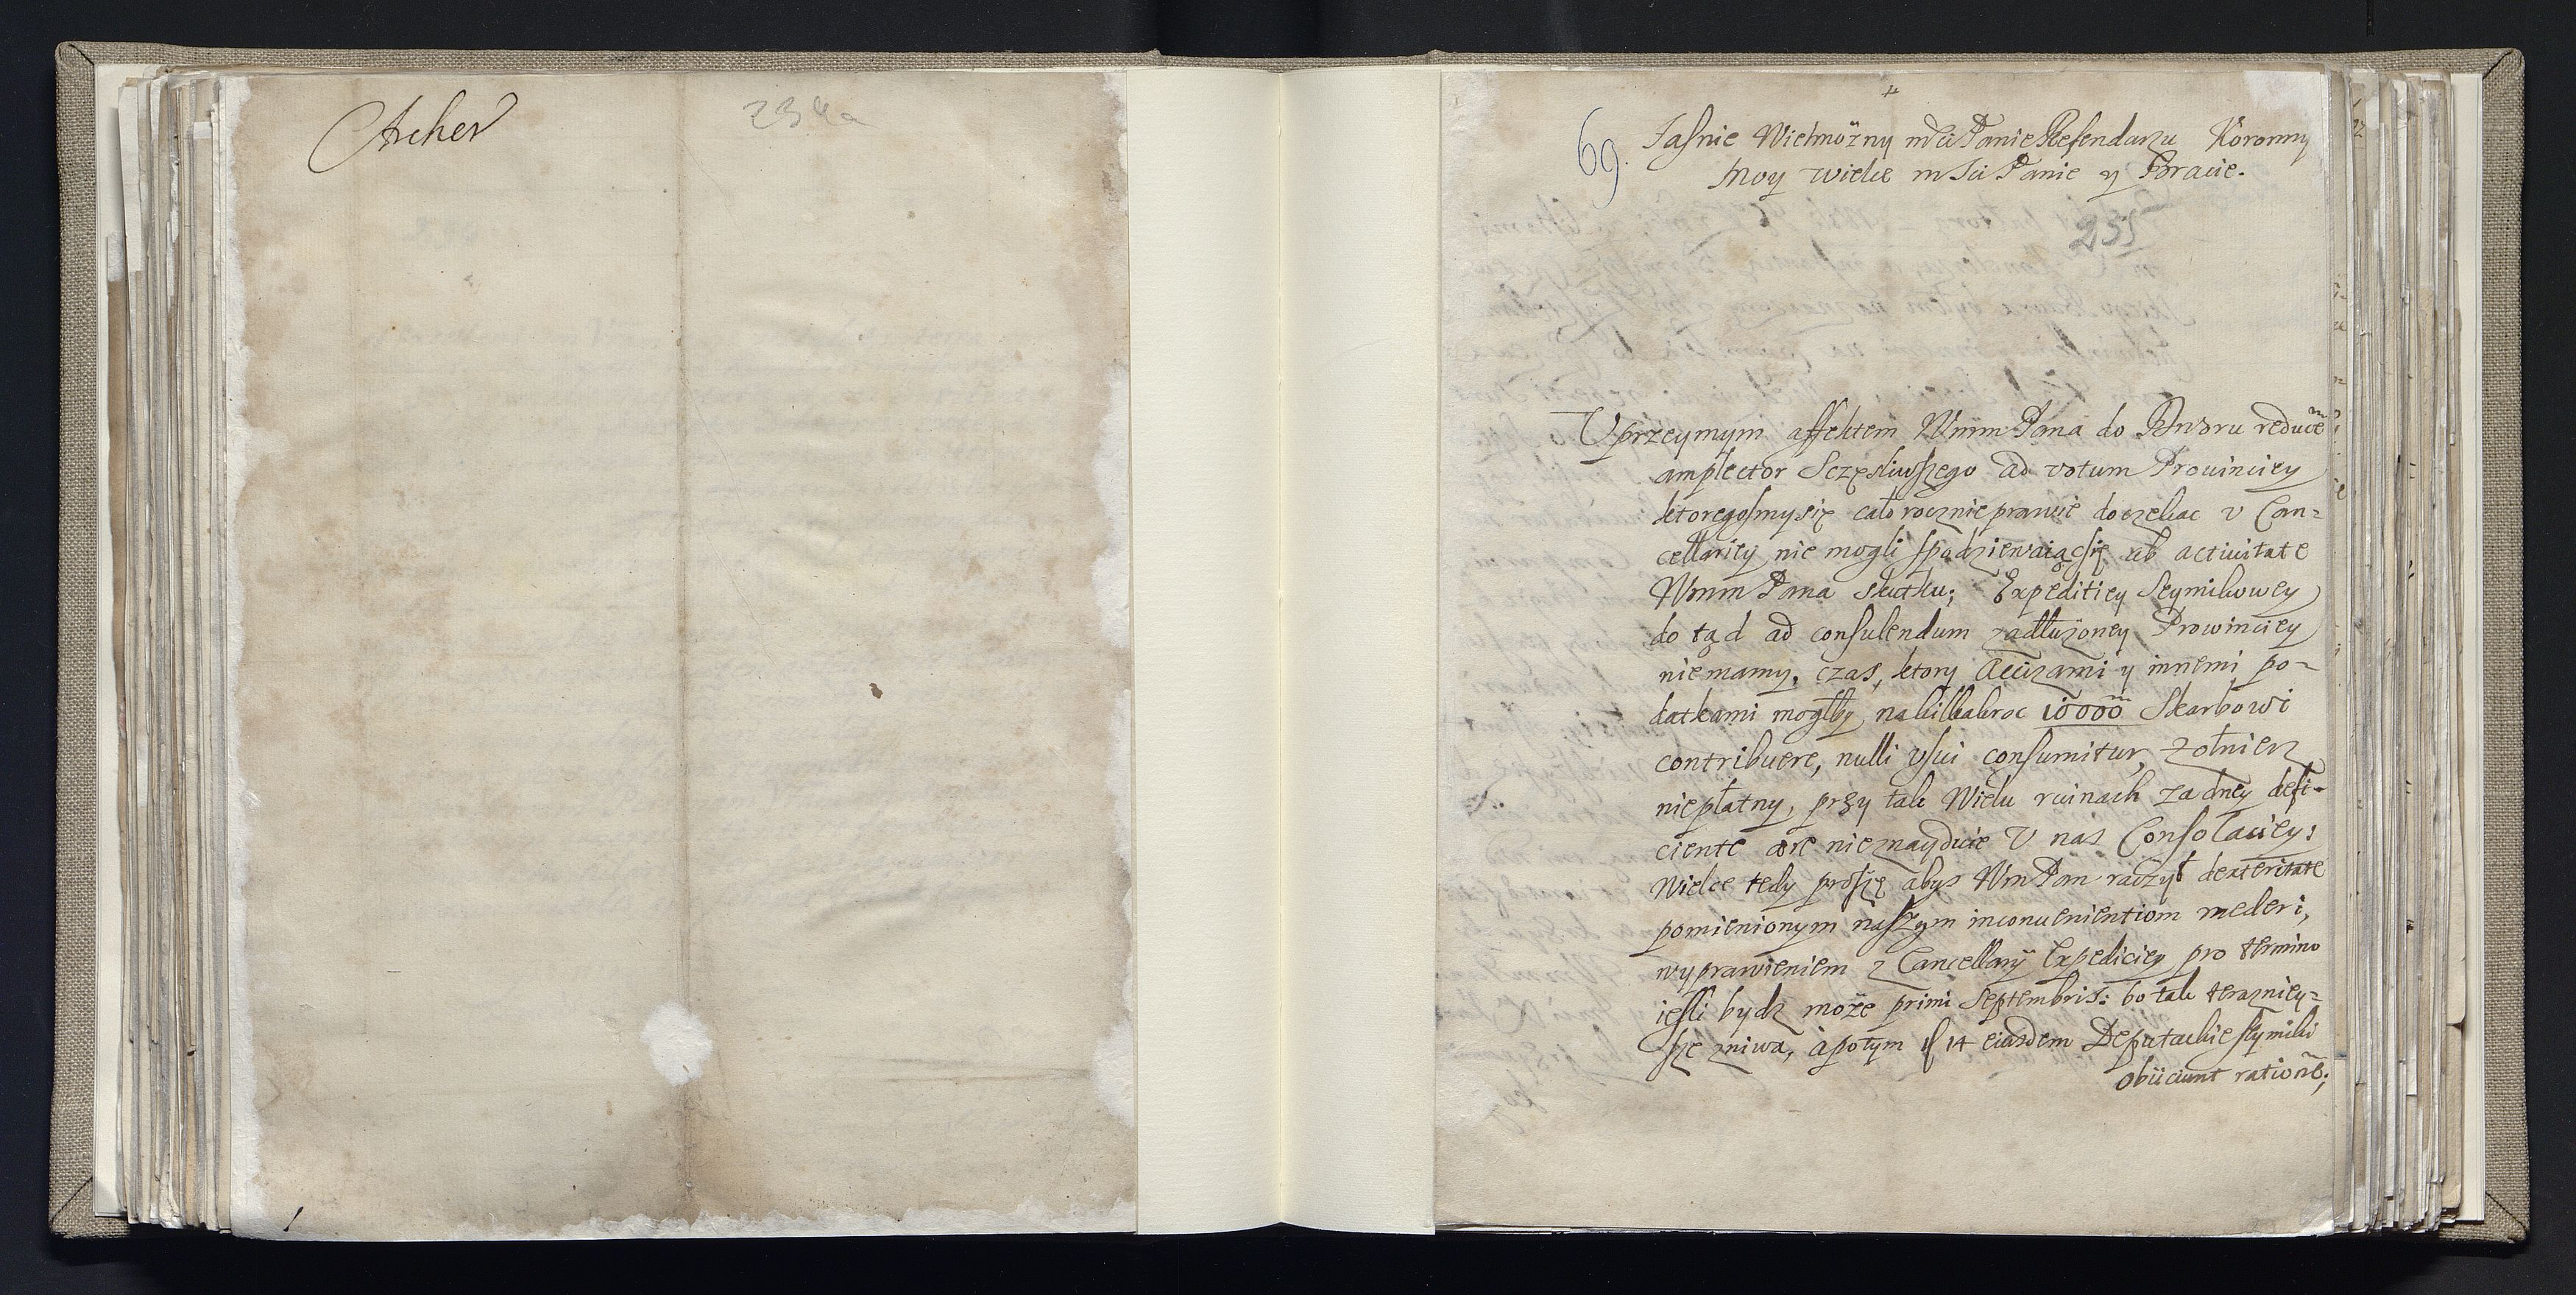 Archer
234a
69.
Jasnie Wielmożny mći Panie Referendarzu Koronny
Moy wielce mSći Panie y Bracie.
235
Uprzeymym affektem Wmm Pana do Dworu reducē
amplector Sczęsliwszego ad votum Prouinciey
ktoregosmysię całorocznie prawie doczekac v Can=
cellariey nie mogli spodziewaiącsię ab actiuitate
Wmm Pana skutku; Expeditiey Seymikowey
do tąd ad consulendum zadłużoney Prowinciey
niemamy, czas, ktory Accizami y innemi po=
datkami mogłby nakilkakroc 10000 Skarbowi
contribuere, nulli vsui consumitur, żołnierz
niepłatny, przy tak Wielu ruinach żadney defi=
ciente ære nieznayduie U nas Consolaciey;
Wielce tedy proszę abys Wm Pan raczył dexteritate
pomienionym naszym inconuenientiom mederi,
wyprawieniem z Cancellaryi Expediciey pro termino
iesli bydz może primi Septembris: bo tak terazniey=
sze zniwa, apotym 14 eiusdem Deputackie seymiki
obiiciunt rationē;